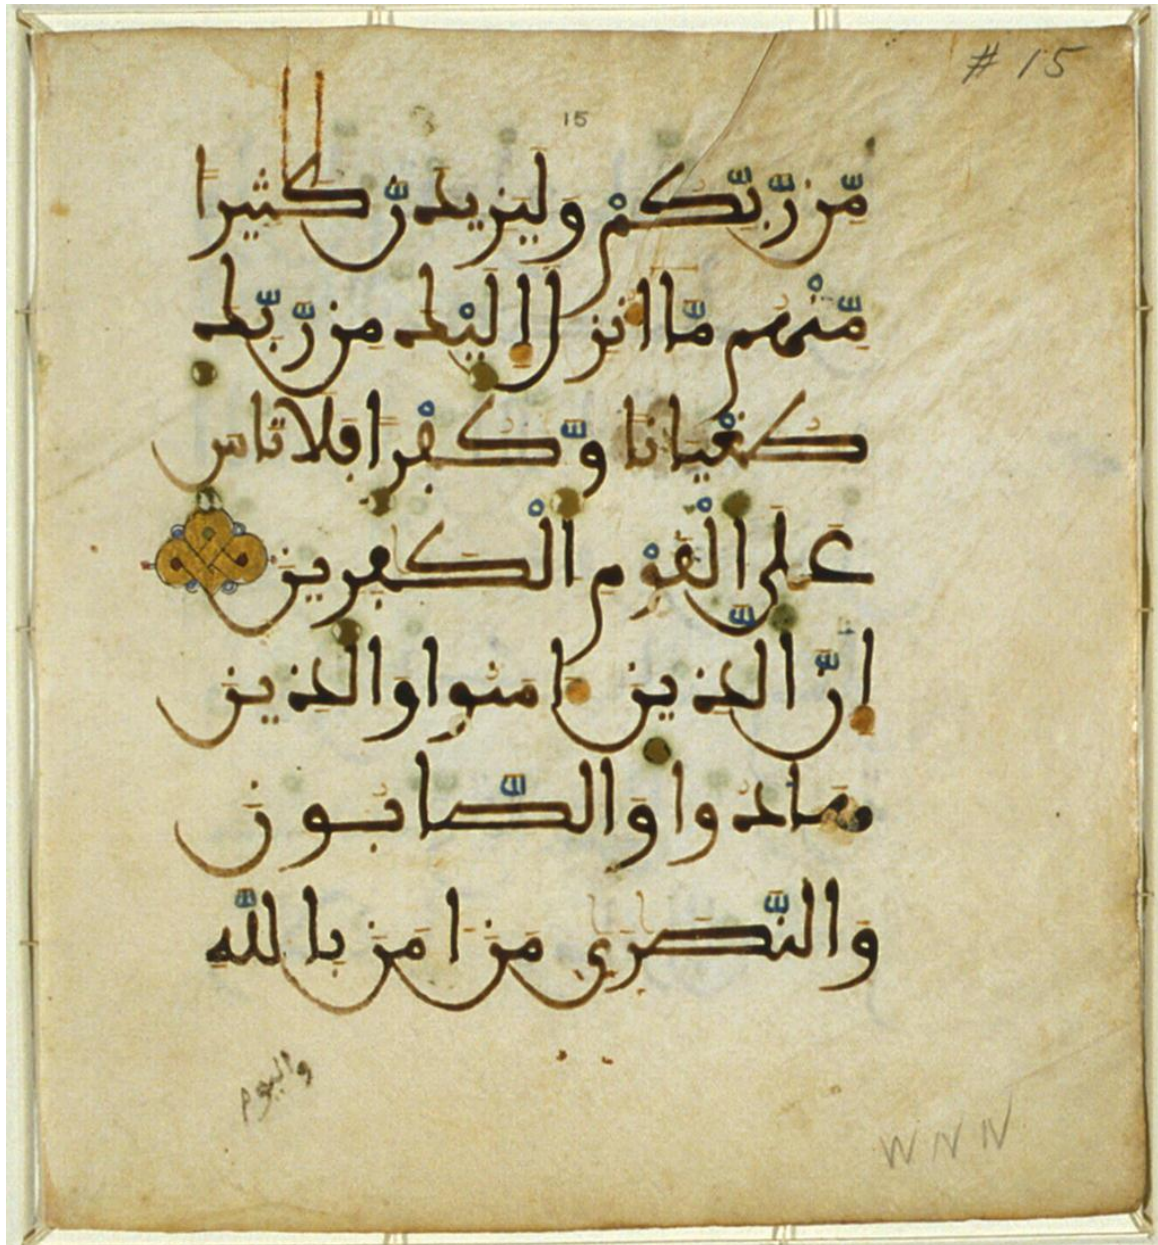 # 15
15
مِّن رَّبِّكُمْ وَلَيَزِيدَنَّ كَثِيرًا
مِّنْهُم مَّا أُنزِلَ إِلَيْكَ مِن رَّبِّكَ
طُغْيَانًا وَّكُفْرًا فَلَا تَاسَ
عَلَى الْقَوْمِ الْكَٰفِرِينَ
إِنَّ الَّذِينَ ءَامَنُوا وَالَّذِينَ
هَادُوا وَالصَّابُونَ
وَالنَّصَٰرَىٰ مَنَ امَنَ بِاللَّهِ
واليوم